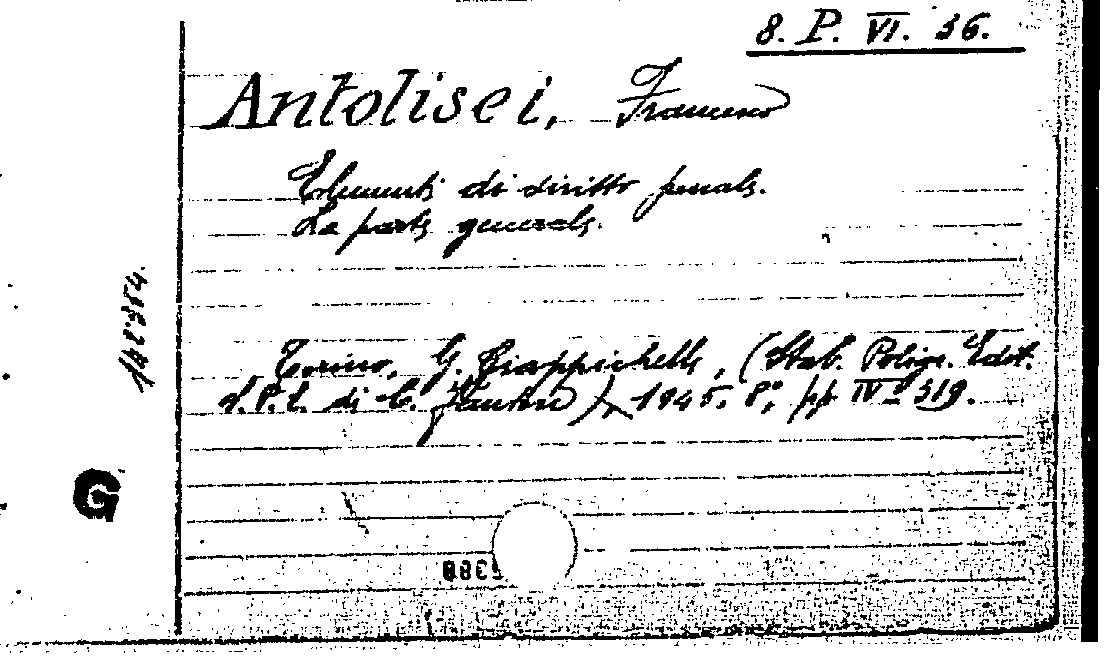 8. P. VI. 36.
Antolisei, Francesco
Elementi di diritto penale.
La parte generale.
142354.
Torino, G. Giappichelli, (Stab. Poligr. Edit.
di C. Fanton), 1945. 8°, pp IV-319.
G